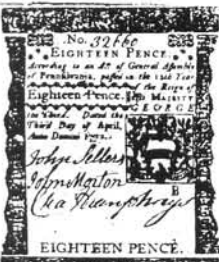 No. 32660
EIGHTEEN PENCE.
According to an Act of General Assembly
of Pennsylvania, passed in the 12th Year
of the Reign of
Eighteen-Pence. His MAJESTY
GEORGE
the Third. Dated the
Third Day of April,
Anno Domini 1772.
John Sellers
John Morton
Cha Humphreys
B
EIGHTEEN PENCE.